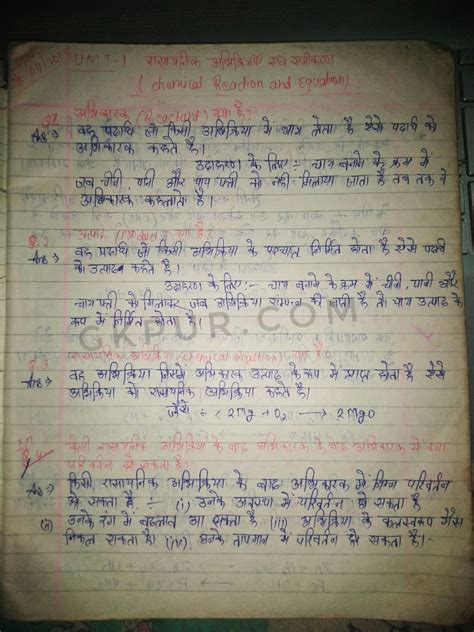 UNIT-1 रासायनिक अभिक्रिया एवं समीकरण
(Chemical Reaction and Equation)
अभिकारक (Reactant) क्या है?
Ans:⇒ वह पदार्थ जो किसी अभिक्रिया में भाग लेता है ऐसे पदार्थ को
अभिकारक कहते है।
उदाहरण के लिए :- चाय बनाने के क्रम में
जब चीनी, पानी और चाय पत्ती को नहीं मिलाया जाता है तब तक वे
अभिकारक कहलाते है।
Q.2. उत्पाद (Product) क्या है?
Ans ⇒ वह पदार्थ जो किसी अभिक्रिया के पश्चात् निर्मित होता है ऐसे पदार्थ
को उत्पाद कहते है।
उदाहरण के लिए:- चाय बनाने के क्रम में चीनी, पानी और
चाय पत्ती को मिलाकर जब अभिक्रिया संपन्न की जाती है तो चाय उत्पाद के
रूप में निर्मित होता है।
GKPUR.COM
Q.3 रासायनिक अभिक्रिया (chemical reaction) क्या है?
Ans ⇒ वह अभिक्रिया जिसमें अभिकारक उत्पाद के रूप में प्राप्त होता है ऐसे
अभिक्रिया को रासायनिक अभिक्रिया कहते है।
जैसे :- 2Mg + O₂ → 2MgO
किसी रासायनिक अभिक्रिया के बाद अभिकारक के बाद अभिकारक में क्या
परिवर्तन हो सकता है?
Ans ⇒ किसी रासायनिक अभिक्रिया के बाद अभिकारक में निम्न परिवर्तन
हो सकता है :- (i) उनके अवस्था में परिवर्तन हो सकता है
(ii) उनके रंग में बदलाव आ सकता है (iii) अभिक्रिया के फलस्वरूप गैस
निकल सकता है। (iv) उनके तापमान में परिवर्तन हो सकता है।